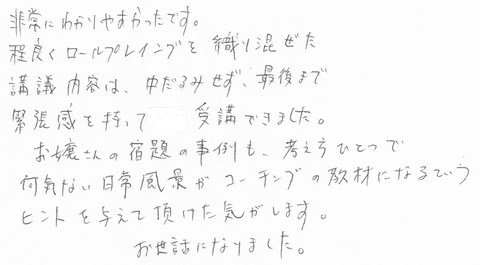 非常にわかりやすかったです。
程良くロールプレイングを織り混ぜた
講議内容は、中だるみせず、最後まで
緊張感を持って 受講できました。
お嬢さんの宿題の事例も、考え方ひとつで
何気ない日常風景がコーチングの教材になるという
ヒントを与えて頂けた気がします。
お世話になりました。